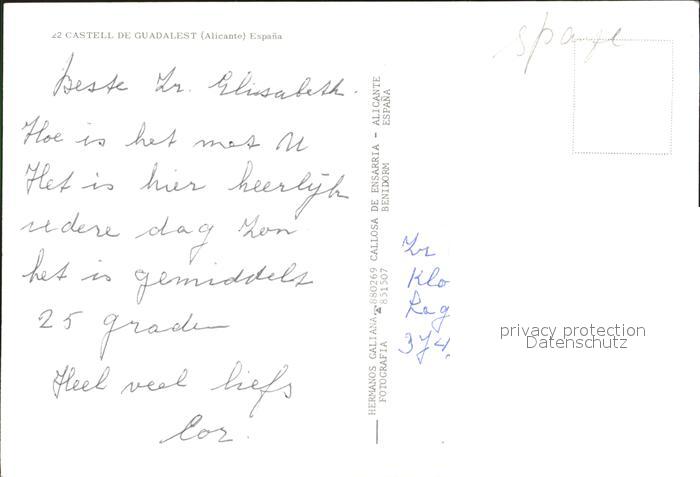 22 CASTELL DE GUADALEST (Alicante) España
Beste Zr. Elisabeth.
Hoe is het met U
Het is hier heerlijk
iedere dag Zon
het is gemiddelt
25 graden
Heel veel liefs
Cor.
HERMANOS GALIANA 880269 CALLOSA DE ENSARRIA - ALICANTE
FOTOGRAFIA 851507 BENIDORM ESPAÑA
Zr
Klo
Lag
privacy protection
Datenschutz